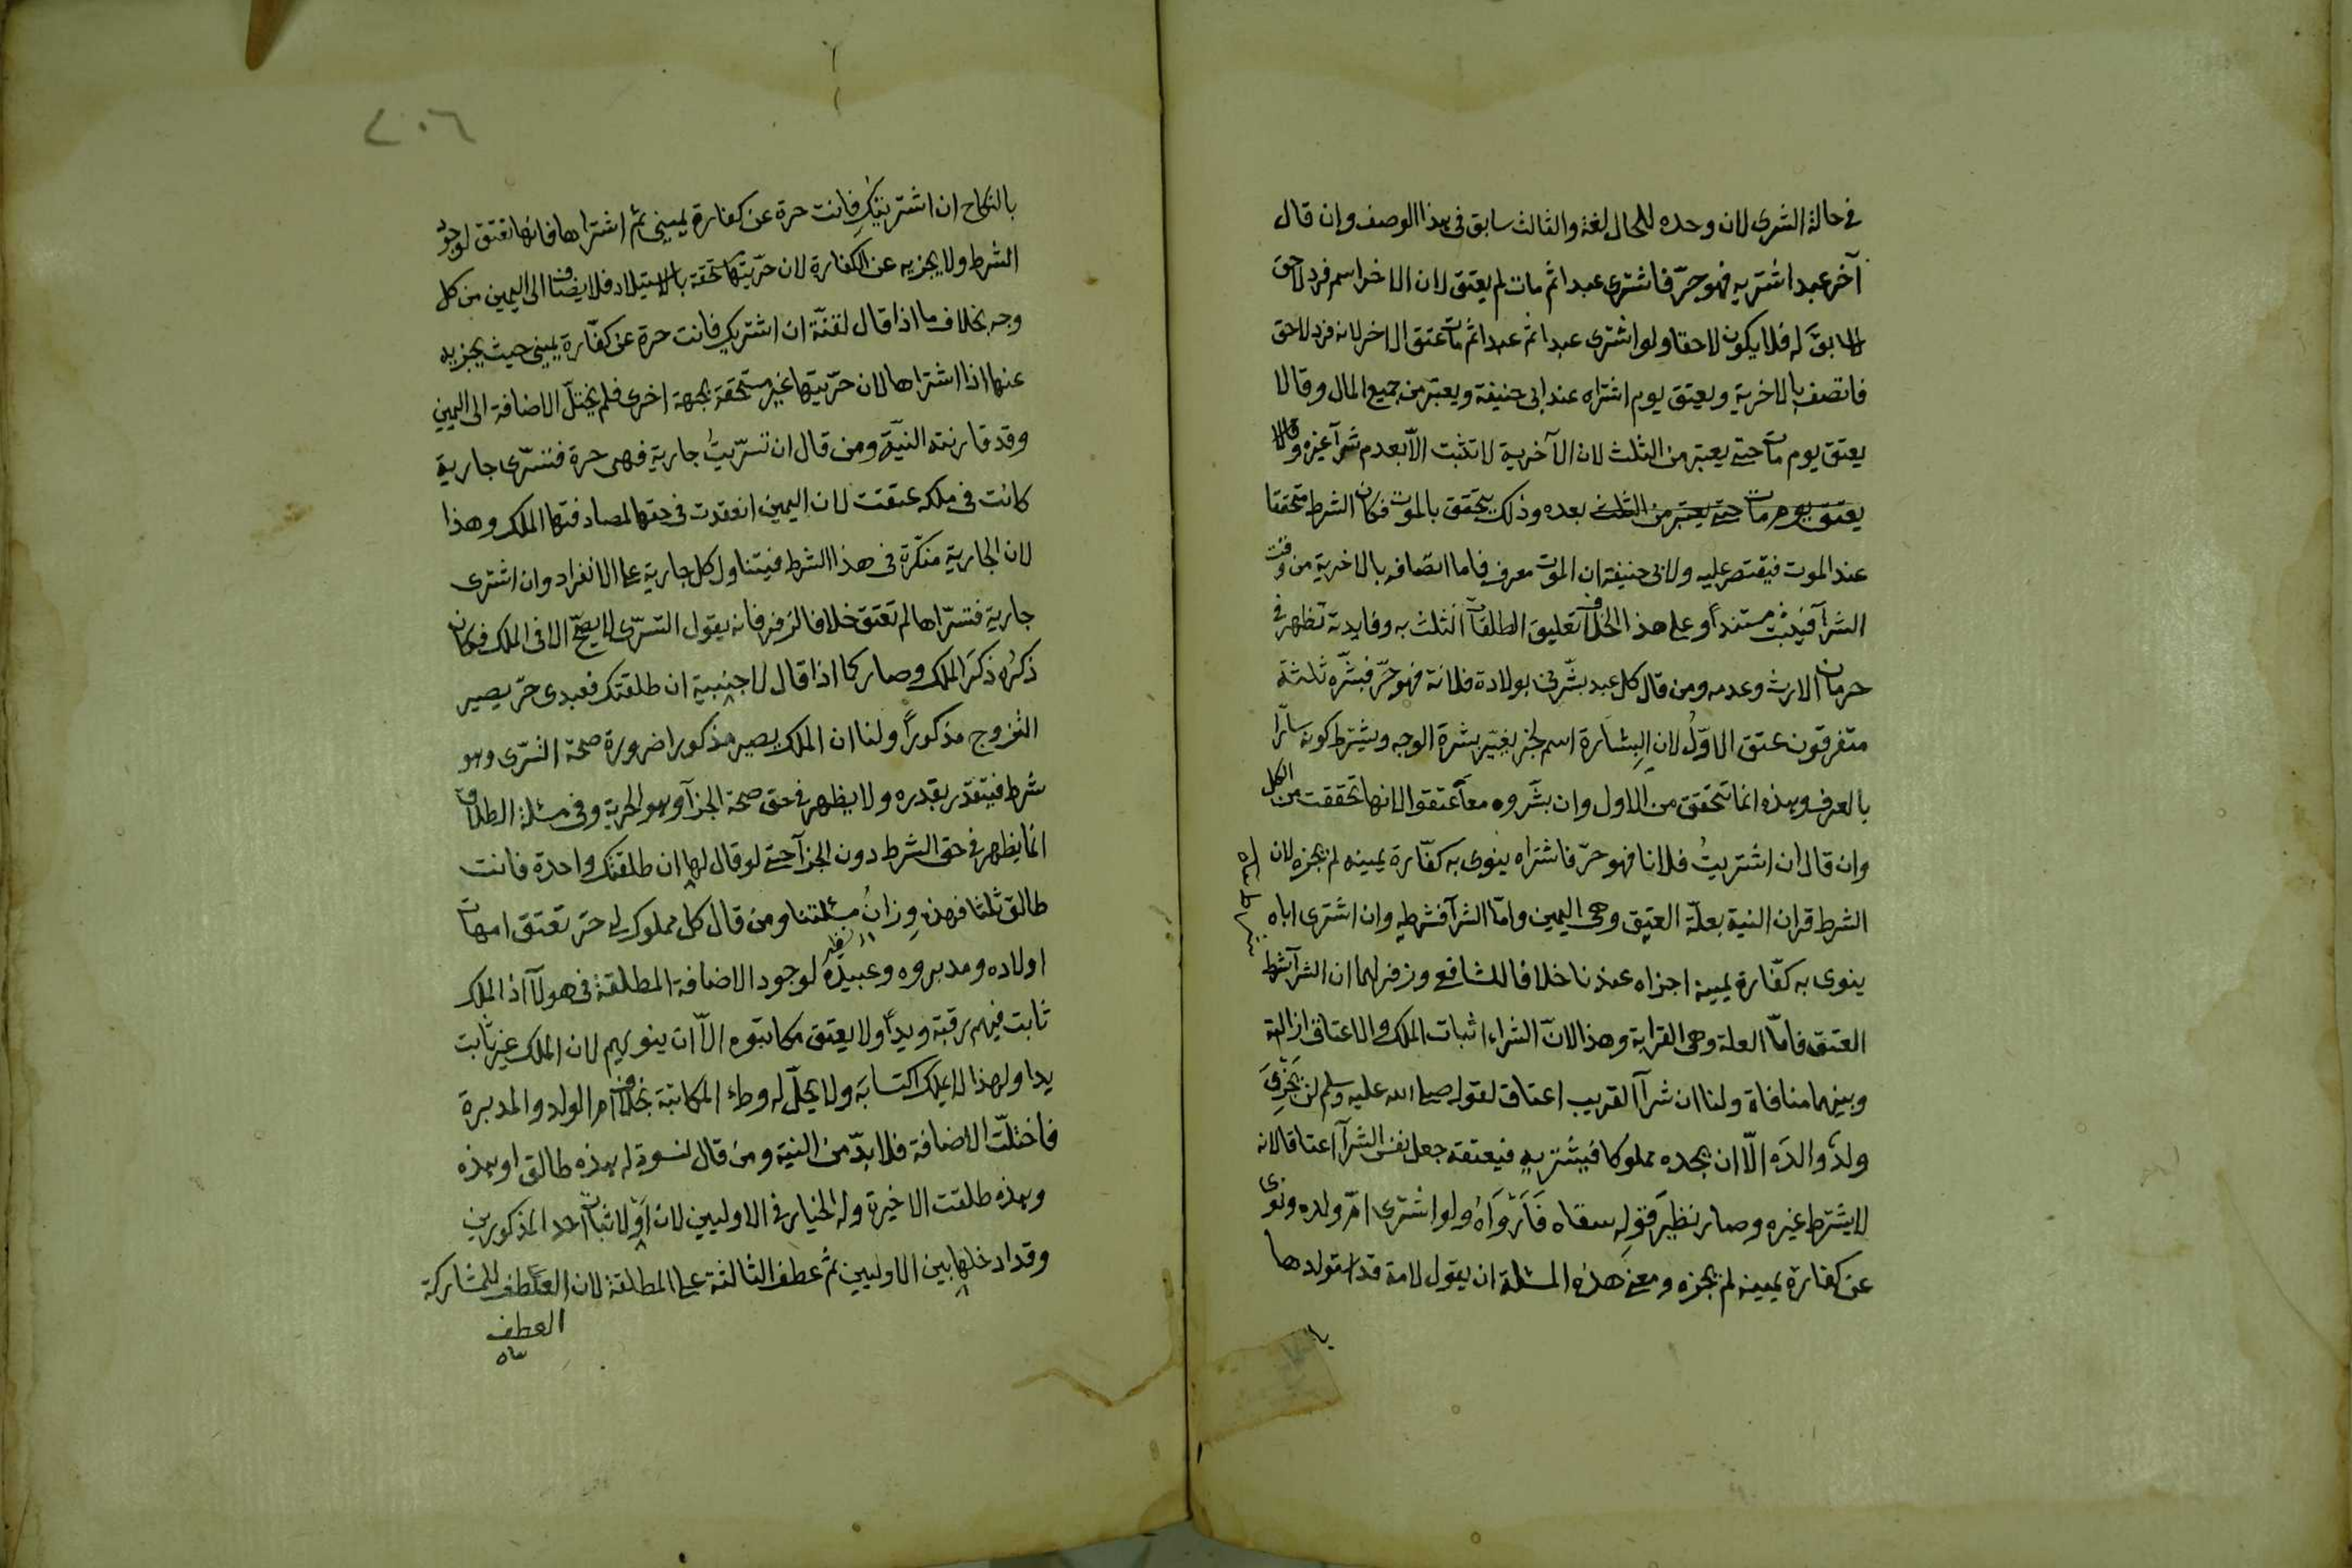 في حالة الشرى لان وحده للحال لغة والثالث سابق في هذا الوصف وان قال
آخر عبد اشتريه فهو حرّ فاشترى عبدا ثم مات لم يعتق لان الاخر اسم فرد لاحق
لا سابقَ له فلا يكون لاحقا ولو اشترى عبدا ثم عبدا ثم مات عتق الاخر لانه فرد لاحق
فاتصف بالاخرية ويعتق يوم اشتراه عند ابى حنيفة ويعتبر من جميع المال وقالا
يعتق يوم مات حتى يعتبر من الثلث لان الآخرية لا تثبت الّا بعدم شرآ غيره وقالا
يعتق يوم مات حتى يعتبر من الثلث بعده وذلك يتحقق بالموت فكان الشرط متحققا
عند الموت فيقتصر عليه ولابى حنيفة ان الموت معرف فاما اتصافه بالاخرية من وقت
الشرآ فيثبت مستنداً وعلى هذا الخلاف تعليق الطلقات الثلث به وفايدته تظهر في
حرمان الارث وعدمه ومن قال كل عبد بشّرنى بولادة فلانة فهو حرّ فبشّره ثلثة
متفرقون عتق الاوّل لان البِشارة اسم لخبر يغيّر بشرة الوجه ويشترط كونه سارّا
بالعرف وهذه انما تتحقق من الاول وان بشّروه معاً عتقوا لانها تحققت من الكل
وان قال ان اشتريتُ فلانا فهو حرّ فاشتراه ينوى به كفّارة يمينه لم يجزه لان
الشرط قران النية بعلّة العتق وهى اليمين وامّا الشرآ فشرطه وان اشترى اباه
ينوى به كفّارة يمينه اجزاه عندنا خلافا للشافعى وزفر لهما ان الشرآ شرط
العتق فامّا العلة وهى القرابة وهذا لانّ الشراء اثبات الملك والاعتاق ازالته
وبينهما منافاة ولنا ان شرآ القريب اعتاق لقوله صلى الله عليه وسلم لن يَجْزِىَ
ولدٌ والدَه الّا ان يجده مملوكا فيشتريه فيعتقه جعل نفس الشرآ اعتاقا لانه
لا يشترط غيره وصار نظيرَ قولِه سقاه فَاَرْوَاهُ ولو اشترى امّ ولده ونوى
عن كفارة يمينه لم يجزه ومعنى هذه المسئلة ان يقول لامة قد استولدها
با
٢٠٦
بالنكاح ان اشتريتكِ فانت حرة عن كفارة يمينى ثم اشتراها فانها تعتق لوجود
الشرط ولا يجزيه عن الكفارة لان حرّيتها مستحقة بالاستيلاد فلا يضاف الى اليمين من كل
وجه بخلاف ما اذا قال لقنّة ان اشتريك فانت حرة عن كفّارة يمينى حيث يجزيه
عنها اذا اشتراها لان حرّيتها غير مستحقة بجهة اخرى فلم يختلّ الاضافة الى اليمين
وقد قارنته النيّة ومن قال ان تسرّيتُ جارية فهى حرة فتسرّى جارية
كانت في ملكه عتقت لان اليمين انعقدت في حقها لمصادفتها الملك وهذا
لان الجارية منكّرة في هذا الشرط فيتناول كل جارية على الانفراد وان اشترى
جارية فتسرّاها لم تعتق خلافا لزفر فانه يقول التسرّى لا يصحّ الا في الملك فكان
ذكرُه ذكرَ الملك وصار كما اذا قال لاجنبية ان طلقتك فعبدى حرّ يصير
التزوج مذكوراً ولنا ان الملك يصير مذكورا ضرورة صحة التسرّى وهو
شرط فيتقدّر بقدره ولا يظهر في حق صحة الجزآ وهو الحرية وفي مسئلة الطلاق
انما يظهر في حق الشرط دون الجزآ حتى لو قال لها ان طلقتك واحدة فانت
طالق ثلثا فهذه وِزانُ مسئلتنا ومن قال كل مملوك لى حرّ تعتق امهات
اولاده ومدبروه وعبيدُه لوجود الاضافة المطلقة في هولآ اذ الملك
ثابت فيهم رقبة ويداً ولا يعتق مكاتبوه الّا ان ينويهم لان الملك غير ثابت
يدا ولهذا لا يملك اكتسابَه ولا يحلّ له وطء المكاتبة بخلاف ام الولد والمدبرة
فاختلّت الاضافة فلا بدّ من النية ومن قال لنسوة له هذه طالق او هذه
وهذه طلقت الاخيرة وله الخيار في الاوليين لان اَوْ لاثبات احد المذكورين
وقد ادخلها بين الاوليين ثم عطف الثالثة على المطلقة لان العطف للمشاركة
العطف